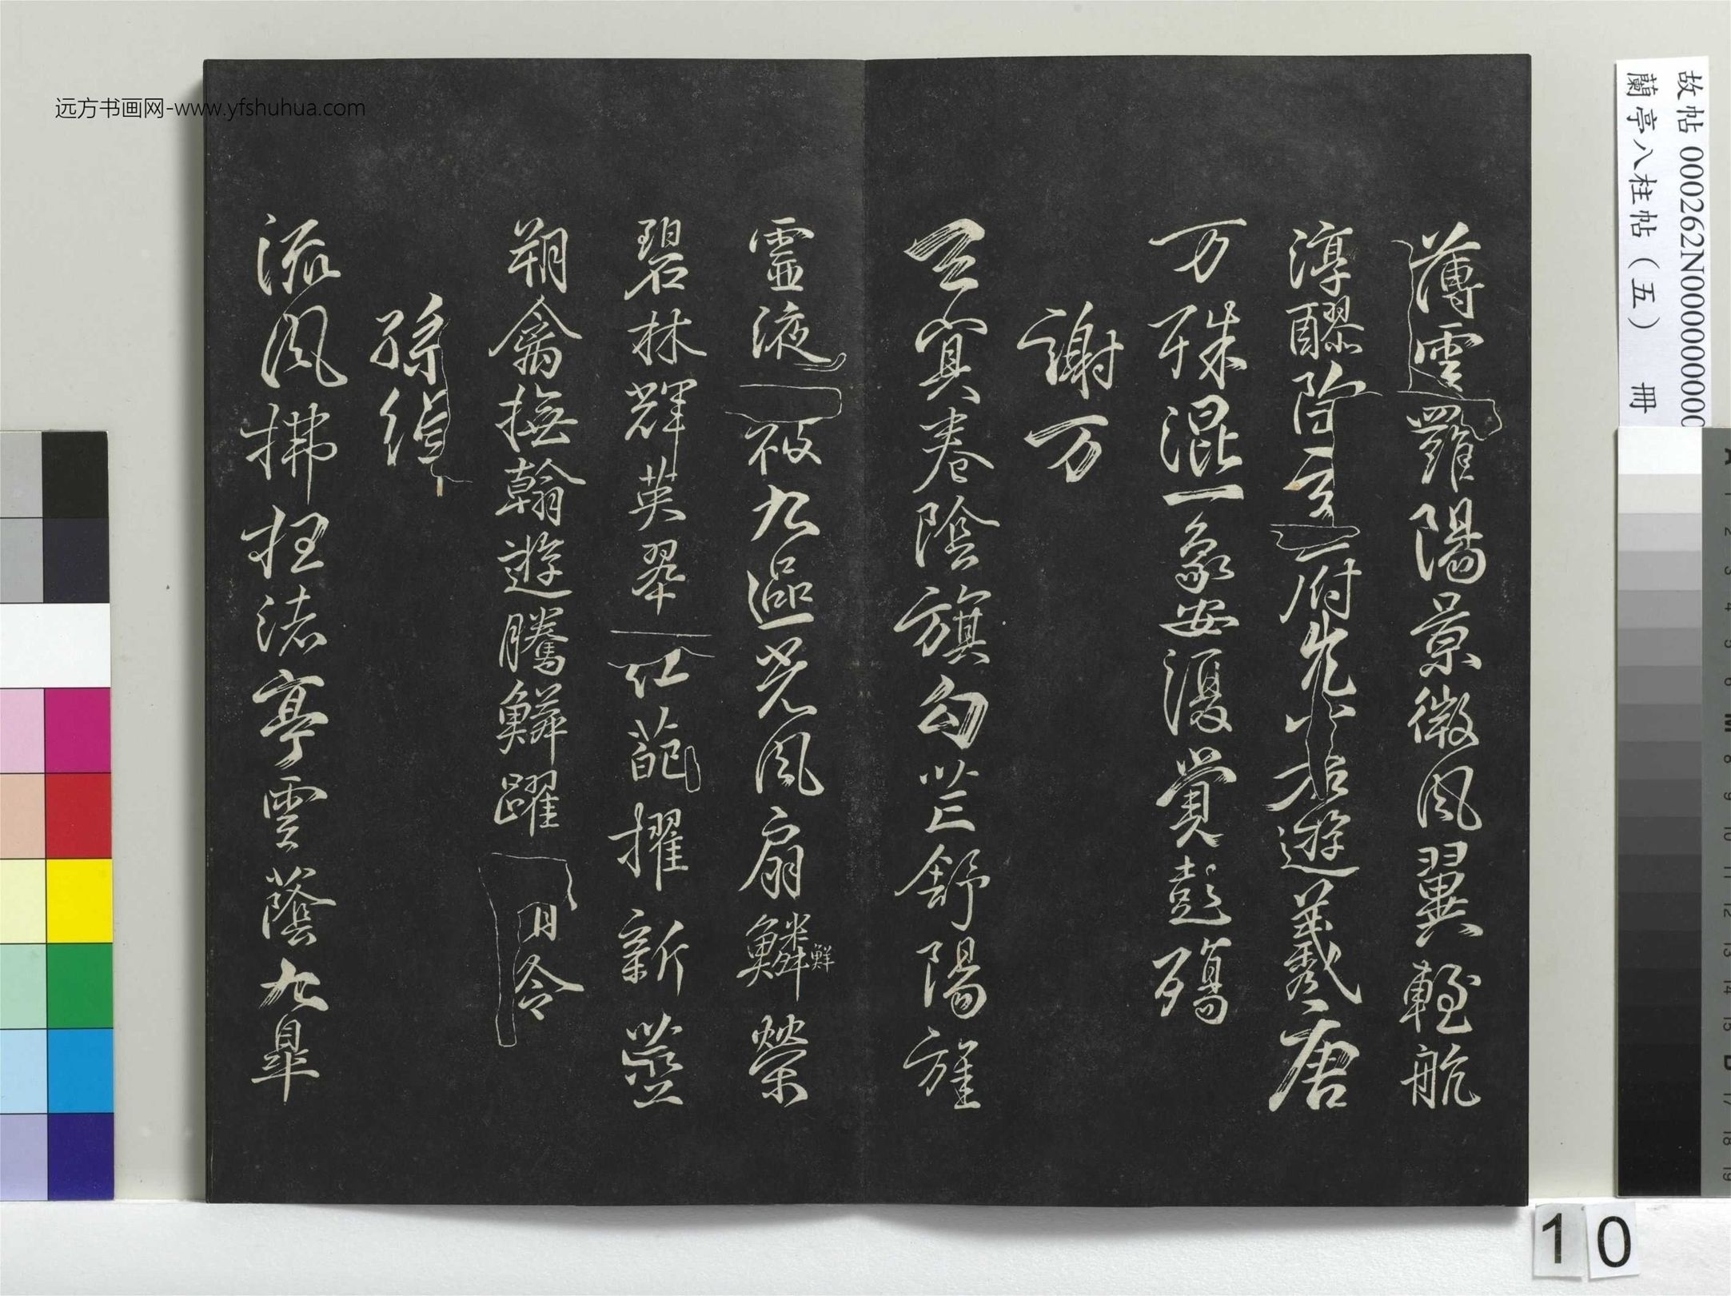 故帖 000262N000000000
蘭亭八柱帖（五） 冊
薄雲羅陽景微風翼輕航
淳醪陶玄府兀若遊羲唐
万殊混一象安復覺彭殤
謝万
玄冥卷陰旗勾芒舒陽旌
靈液被九區光風扇鱗鮮榮
碧林輝英翠紅葩擢新莖
翔禽撫翰遊騰鱗躍
孫綽
流風拂枉渚亭雲蔭九皋
远方书画网-www.yfshuhua.com
10